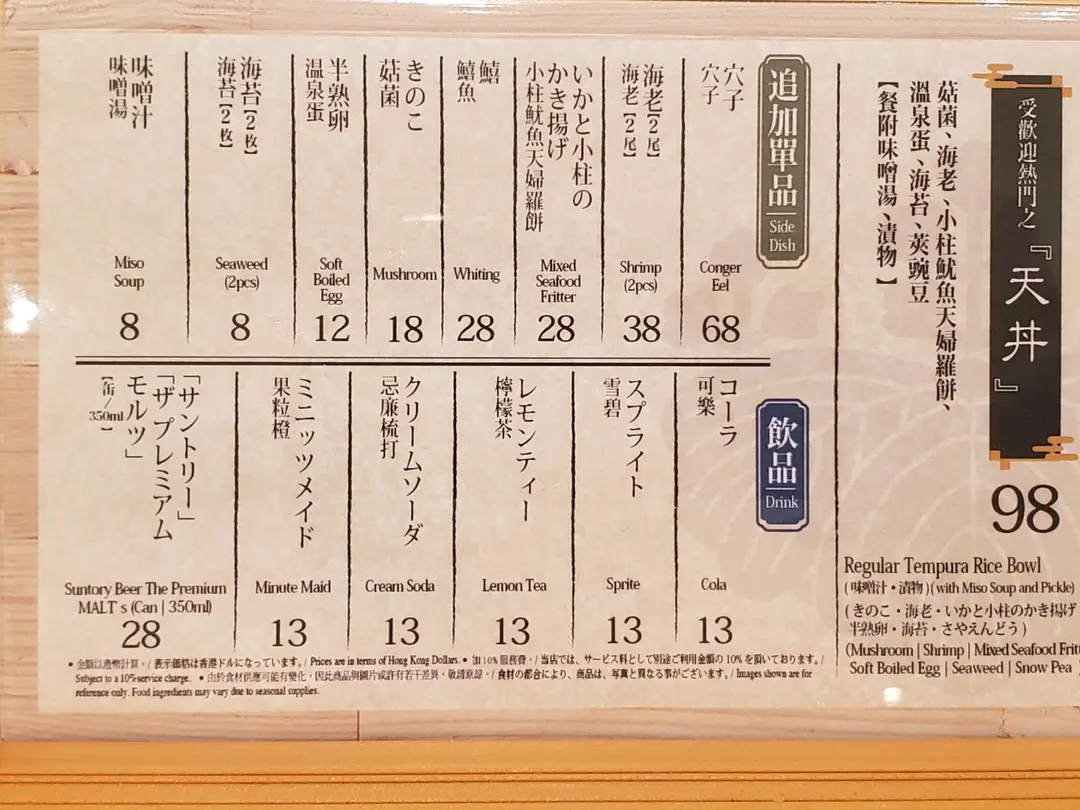 受歡迎熱門之
『天丼』
98
菇菌、海老、小柱魷魚天婦羅餅、
溫泉蛋、海苔、莢豌豆
【餐附味噌湯、漬物】
Regular Tempura Rice Bowl
(味噌汁・漬物)(with Miso Soup and Pickle)
(きのこ・海老・いかと小柱のかき揚げ
半熟卵・海苔・さやえんどう)
(Mushroom | Shrimp | Mixed Seafood Fritt
Soft Boiled Egg | Seaweed | Snow Pea
追加單品
Side
Dish
穴子
穴子
Conger
Eel
68
海老【2尾】
海老【2尾】
Shrimp
(2pcs)
38
いかと小柱の
かき揚げ
小柱魷魚天婦羅餅
Mixed
Seafood
Fritter
28
鱚
鱚魚
Whiting
28
きのこ
菇菌
Mushroom
18
半熟卵
溫泉蛋
Soft
Boiled
Egg
12
海苔【2枚】
海苔【2枚】
Seaweed
(2pcs)
8
味噌汁
味噌湯
Miso
Soup
8
飲品
Drink
コーラ
可樂
Cola
13
スプライト
雪碧
Sprite
13
レモンティー
檸檬茶
Lemon Tea
13
クリームソーダ
忌廉梳打
Cream Soda
13
ミニッツメイド
果粒橙
Minute Maid
13
「サントリー」
「ザプレミアム
モルツ」
【缶/350ml】
Suntory Beer The Premium
MALT's (Can | 350ml)
28
• 金額以港幣計算。/ 表示価格は香港ドルになっています。/ Prices are in terms of Hong Kong Dollars. • 加10%服務費。/ 当店では、サービス料として別途ご利用金額の10%を頂いております。/
Subject to a 10% service charge. • 由於食材供應可能有變化，因此商品與圖片或許有若干差異，敬請原諒。/ 食材の都合により、商品は、写真と異なる事がございます。/ Images shown are for
reference only. Food ingredients may vary due to seasonal supplies.